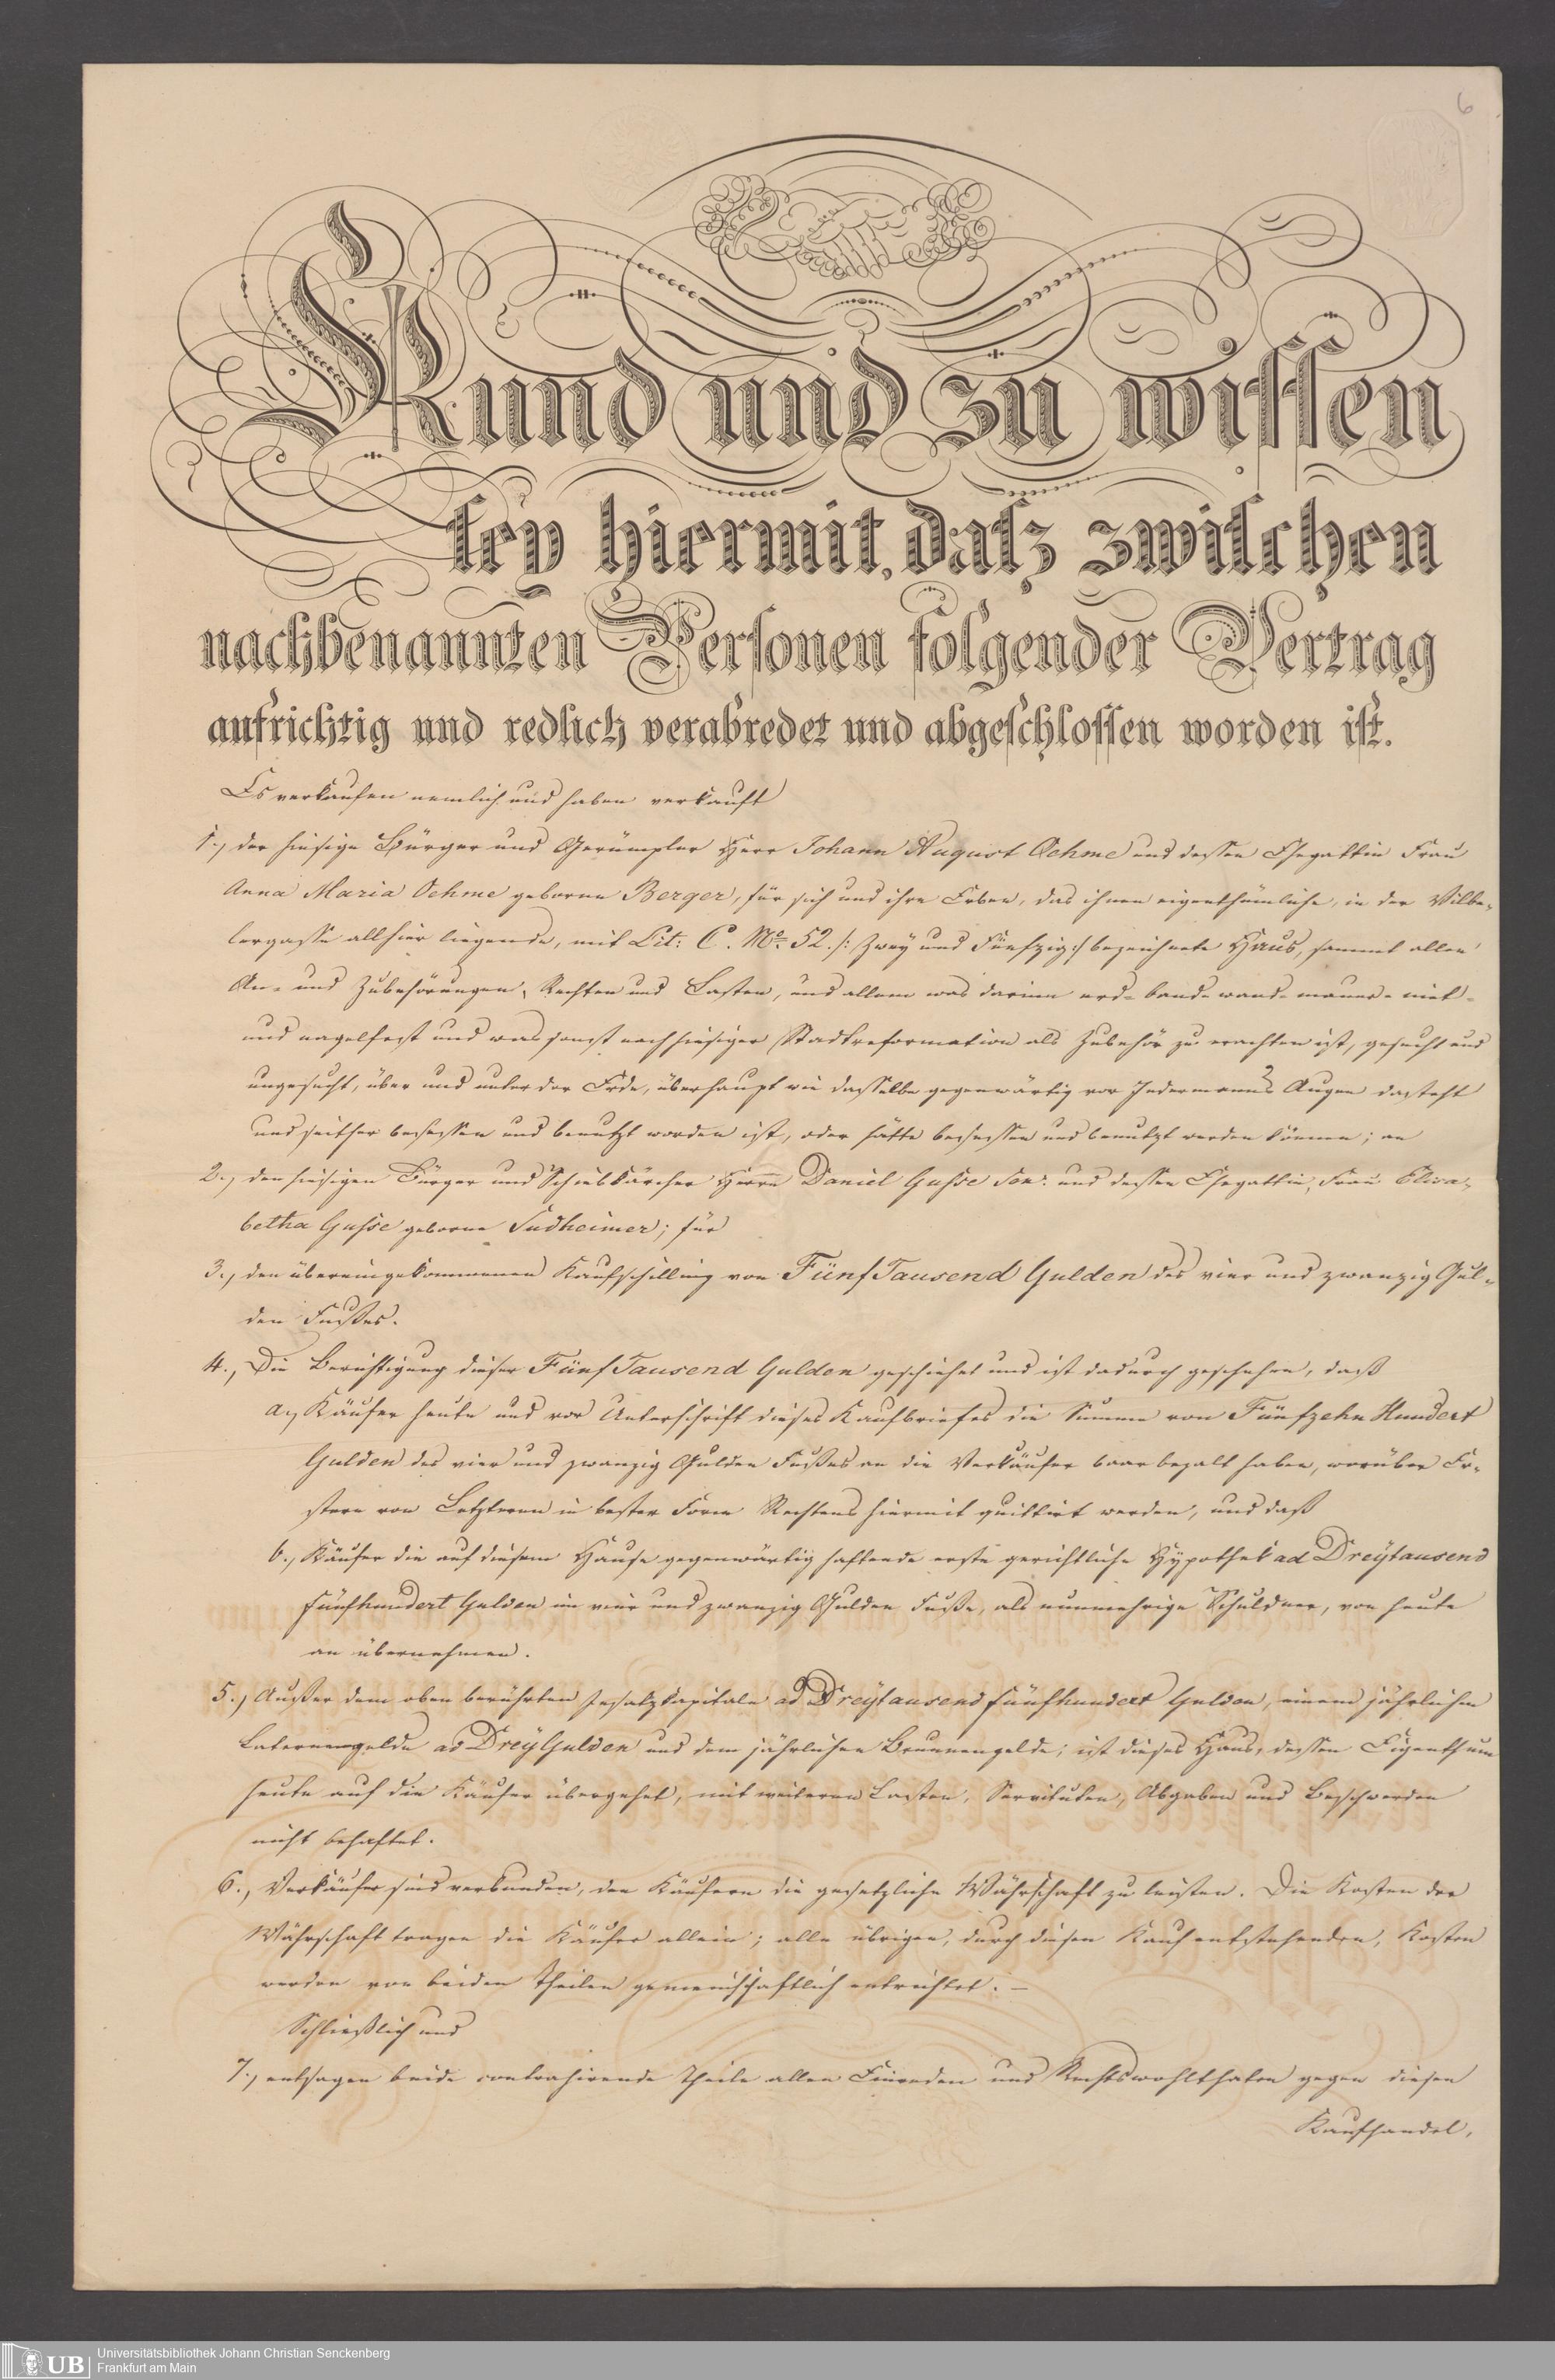 6
Kund und zu wissen
sey hiermit, dasz zwischen
nachbenannten Personen folgender Vertrag
aufrichtig und redlich verabredet und abgeschlossen worden ist.
Es verkaufen nemlich und haben verkauft
1., der hiesige Bürger und Gerümpler Herr Johann August Oehme und dessen Ehegattin Frau
Anna Maria Oehme geborne Berger, für sich und ihre Erben, das ihnen eigenthümliche, in der Vilbe-
lergasse allhier liegende, mit Lit: C. No. 52. /: Zwey und Fünfzig :/ bezeichnete Haus, sammt allen
An- und Zubehörungen, Rechten und Lasten, und allem was darinn erd- band- wand- mauer- niet-
und nagelfest und was sonst nach hiesiger Stadtreformation als Zubehör zu erachten ist, gesucht und
ungesucht, über und unter der Erde, überhaupt wie dasselbe gegenwärtig vor Jedermanns Augen dasteht
und seither besessen und benutzt worden ist, oder hätte besessen und benutzt werden können; an
2., den hiesigen Bürger und Schiebkärcher Herrn Daniel Gusse Senr. und dessen Ehegattin, Frau Elisa-
betha Gusse geborne Sudheimer; für
3., den übereingekommenen Kaufschilling von Fünf Tausend Gulden des vier und zwanzig Gul-
den Fußes.
4., Die Berichtigung dieser Fünf Tausend Gulden geschiehet und ist dadurch geschehen, daß
a., Käufer heute und vor Unterschrift dieses Kaufbriefes die Summe von Fünfzehn Hundert
Gulden des vier und zwanzig Gulden Fußes an die Verkäufer baar bezalt haben, worüber Er-
stere von Letzteren in bester Form Rechtens hiermit quittirt werden, und daß
b., Käufer die auf diesem Hause gegenwärtig haftende erste gerichtliche Hypothek ad Dreytausend
fünfhundert Gulden im vier und zwanzig Gulden Fuße, als nunmehrige Schuldner, von heute
an übernehmen.
5., Außer dem oben berührten Insatzkapitale ad Dreytausend fünfhundert Gulden, einem jährlichen
Laternengelde ad Drey Gulden und dem jährlichen Brunnengelde; ist dieses Haus, dessen Eigenthum
heute auf die Käufer übergehet, mit weiteren Lasten, Servituten, Abgaben und Beschwerden
nicht behaftet.
6., Verkäufer sind verbunden, den Käufern die gesetzliche Währschaft zu leisten. Die Kosten der
Währschaft tragen die Käufer allein; alle übrigen, durch diesen Kauf entstehenden, Kosten
werden von beiden Theilen gemeinschaftlich entrichtet. —
Schließlich und
7., entsagen beide contrahirende Theile allen Einreden und Rechtswohlthaten gegen diesen
Kaufhandel,
UB
Universitätsbibliothek Johann Christian Senckenberg
Frankfurt am Main